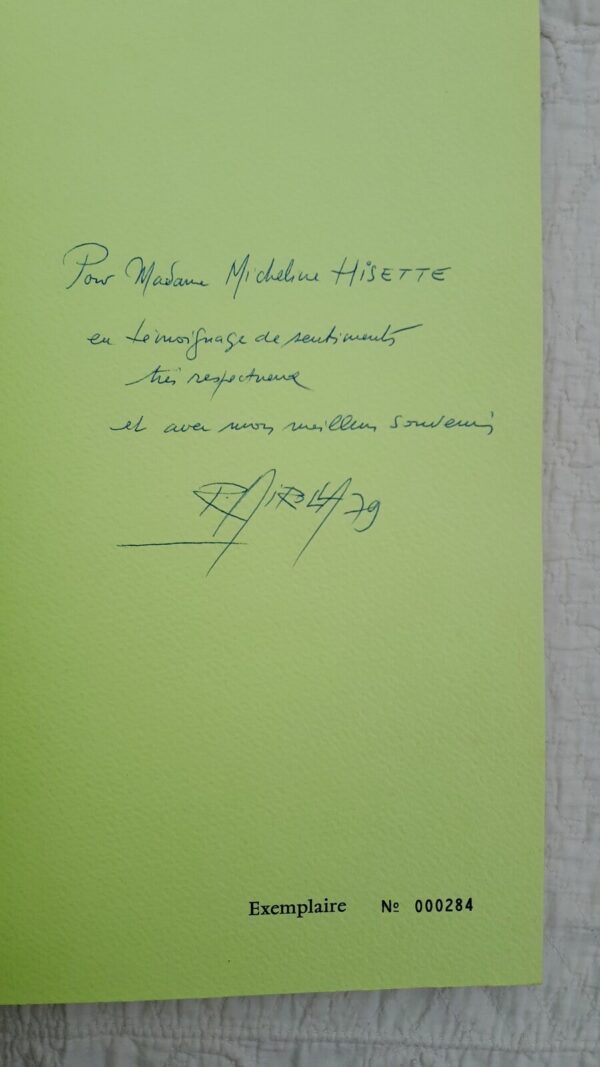 Pour Madame Micheline HISETTE
en témoignage de sentiments
très respectueux
et avec mon meilleur souvenir
79
Exemplaire № 000284